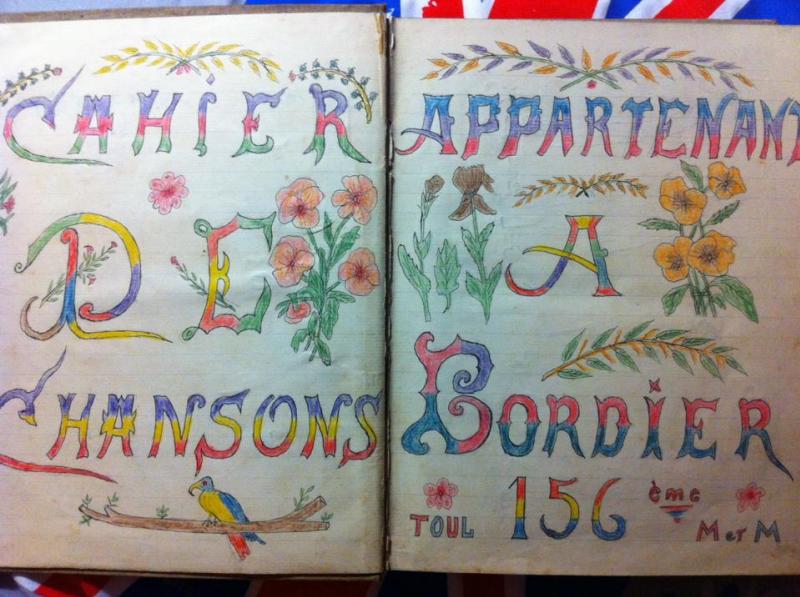 CAHIER
DE
CHANSONS
APPARTENANT
A
BORDIER
TOUL 156 ème M et M